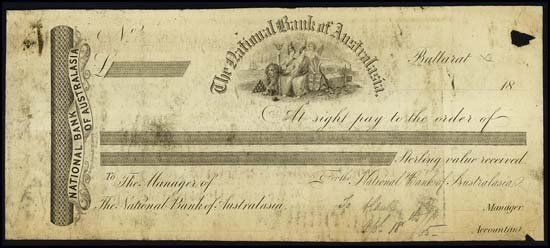 No.
£
The National Bank of Australasia.
Ballarat
18
NATIONAL BANK
OF AUSTRALASIA
At sight pay to the order of
Sterling value received.
To The Manager of
For the National Bank of Australasia.
The National Bank of Australasia.
Manager
Accountant